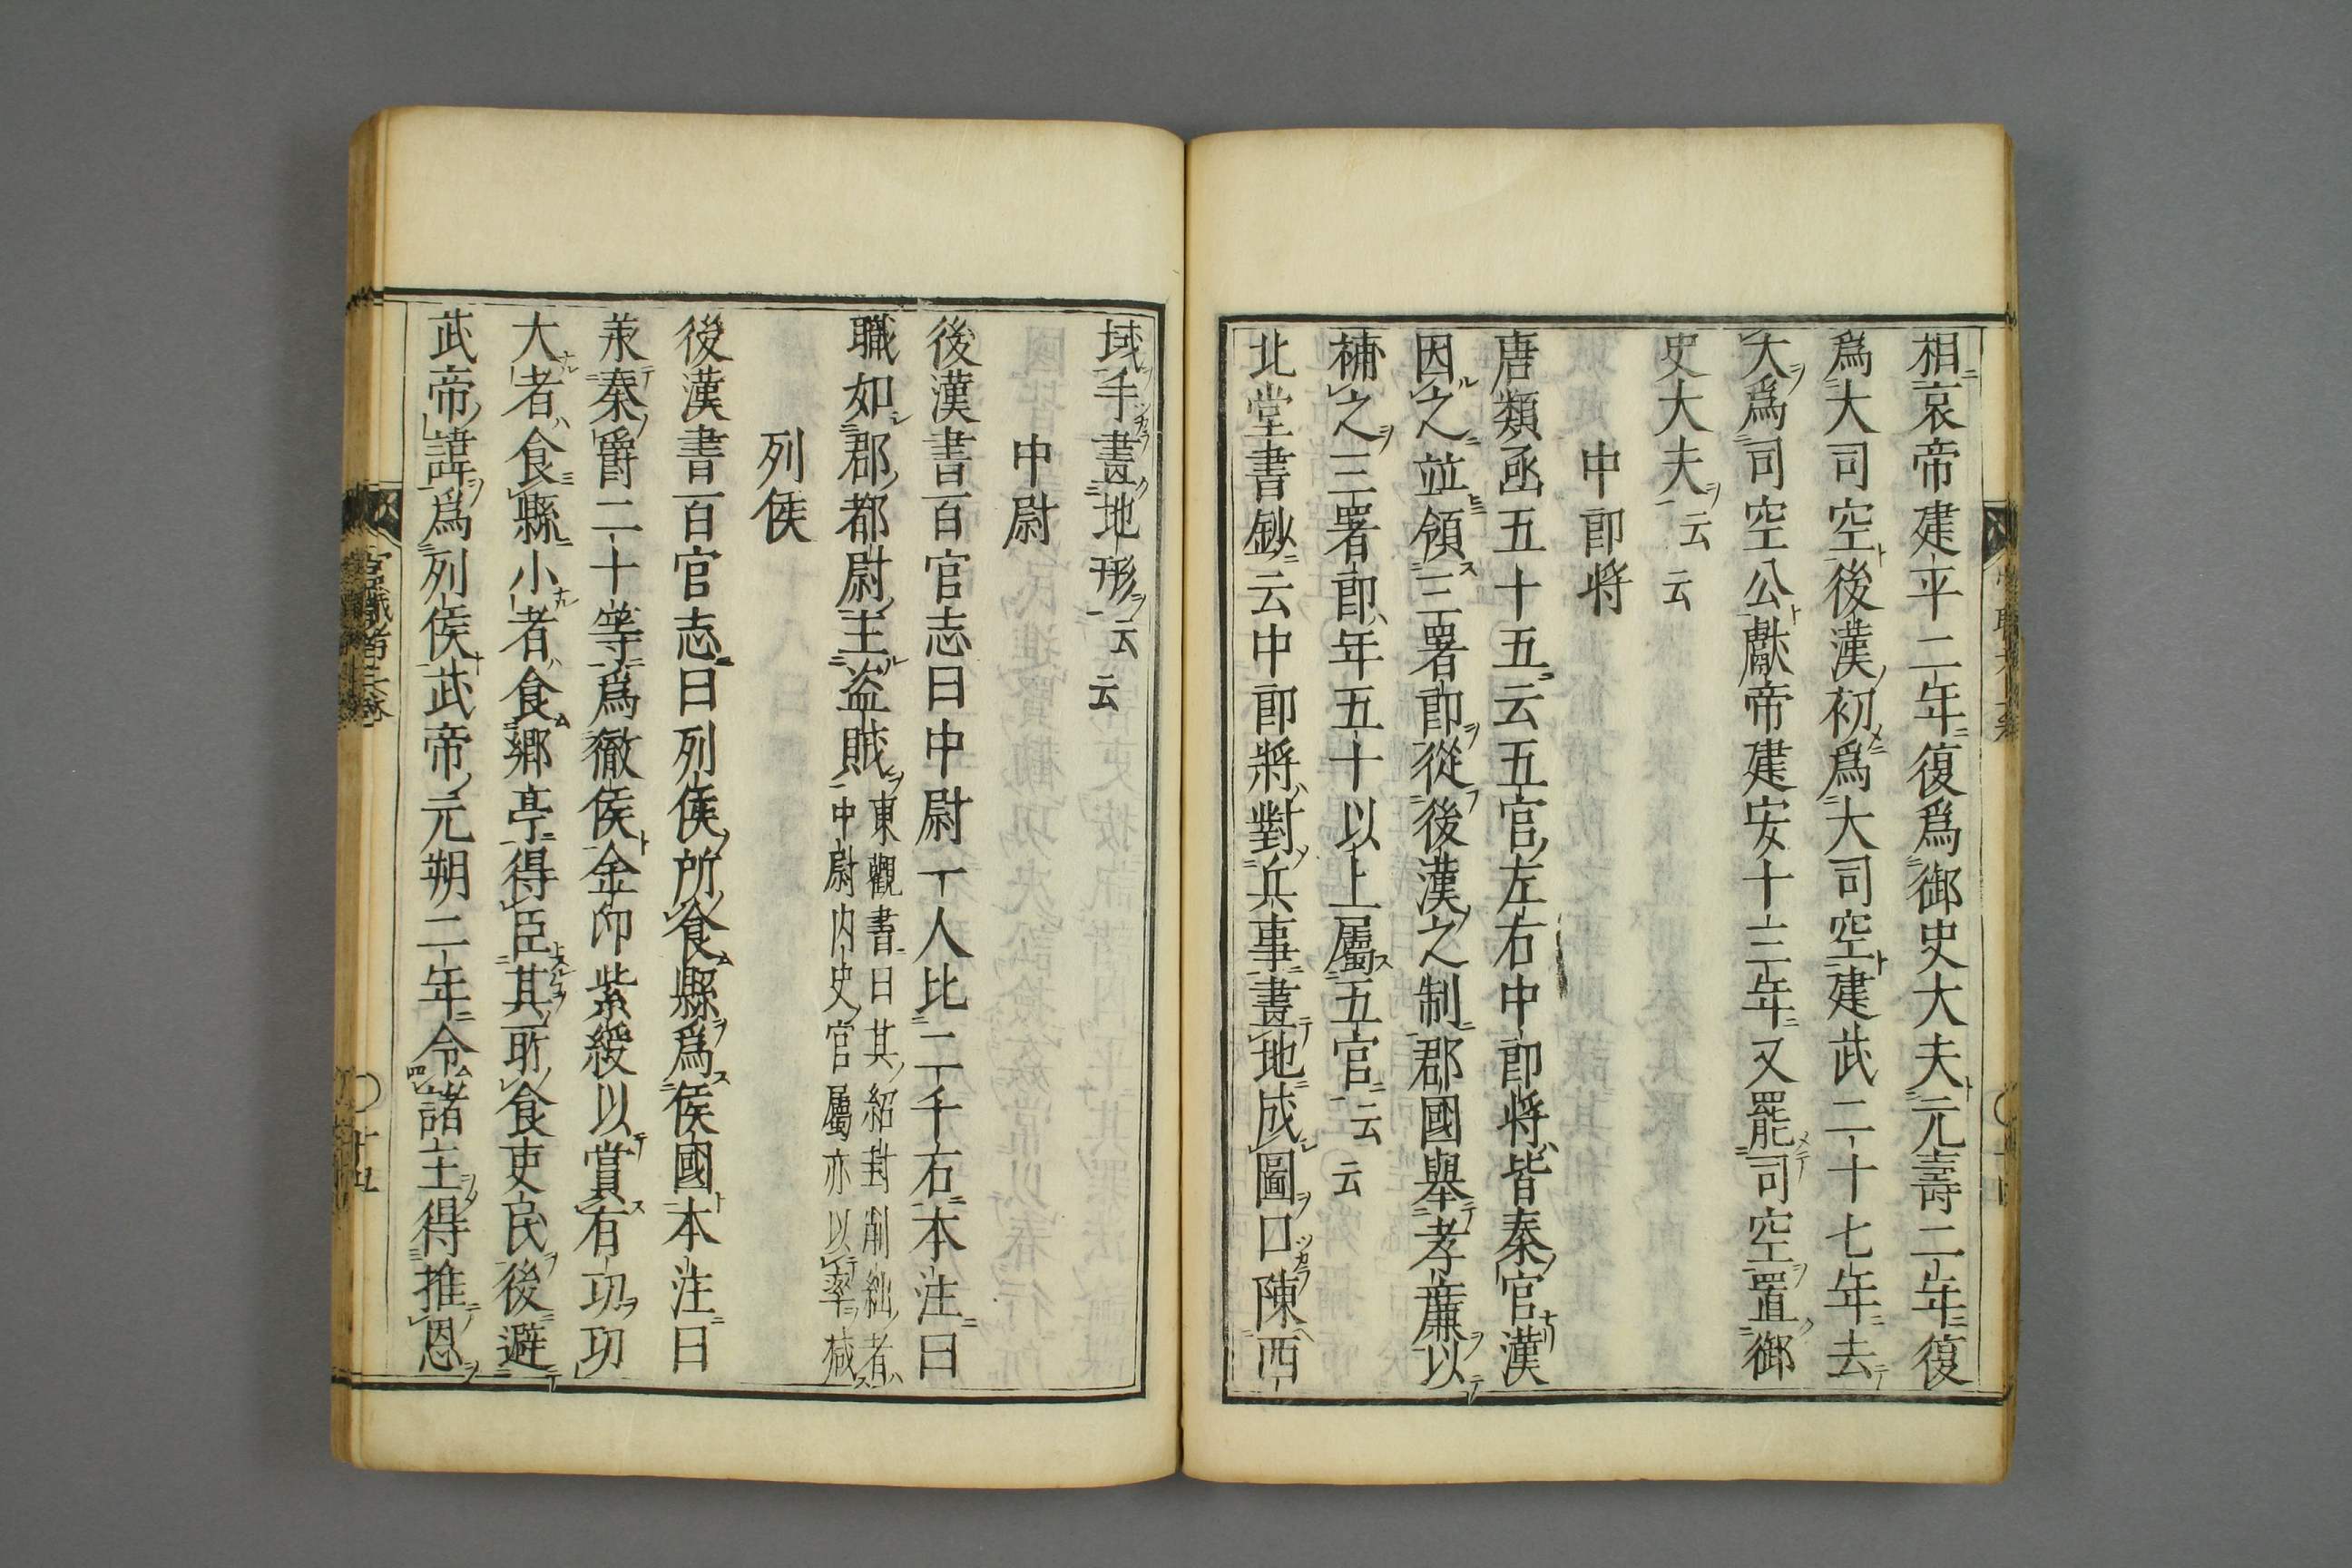 相哀帝建平二年復爲御史大夫元壽二年復
爲大司空後漢初爲大司空建武二十七年去
大爲司空公獻帝建安十三年又罷司空置御
史大夫云云
中郎將
唐類函五十五云五官左右中郎將皆秦官漢
因之並領三署郎從後漢之制郡國舉孝廉以
補之三署郎年五十以上屬五官云云
北堂書鈔云中郎將對兵事畫地成圖口陳西
域手畫地形云云
中尉
後漢書百官志曰中尉一人比二千石本注曰
職如郡都尉主盗賊
東觀書曰其紹封削絀者
中尉内史官屬亦以率减
列侯
後漢書百官志曰列侯所食縣爲侯國本注曰
承秦爵二十等爲徹侯金印紫綬以賞有功功
大者食縣小者食郷亭得臣其所食吏民後避
武帝諱爲列侯武帝元朔二年令諸王得推恩
官職部三巻
〇十五